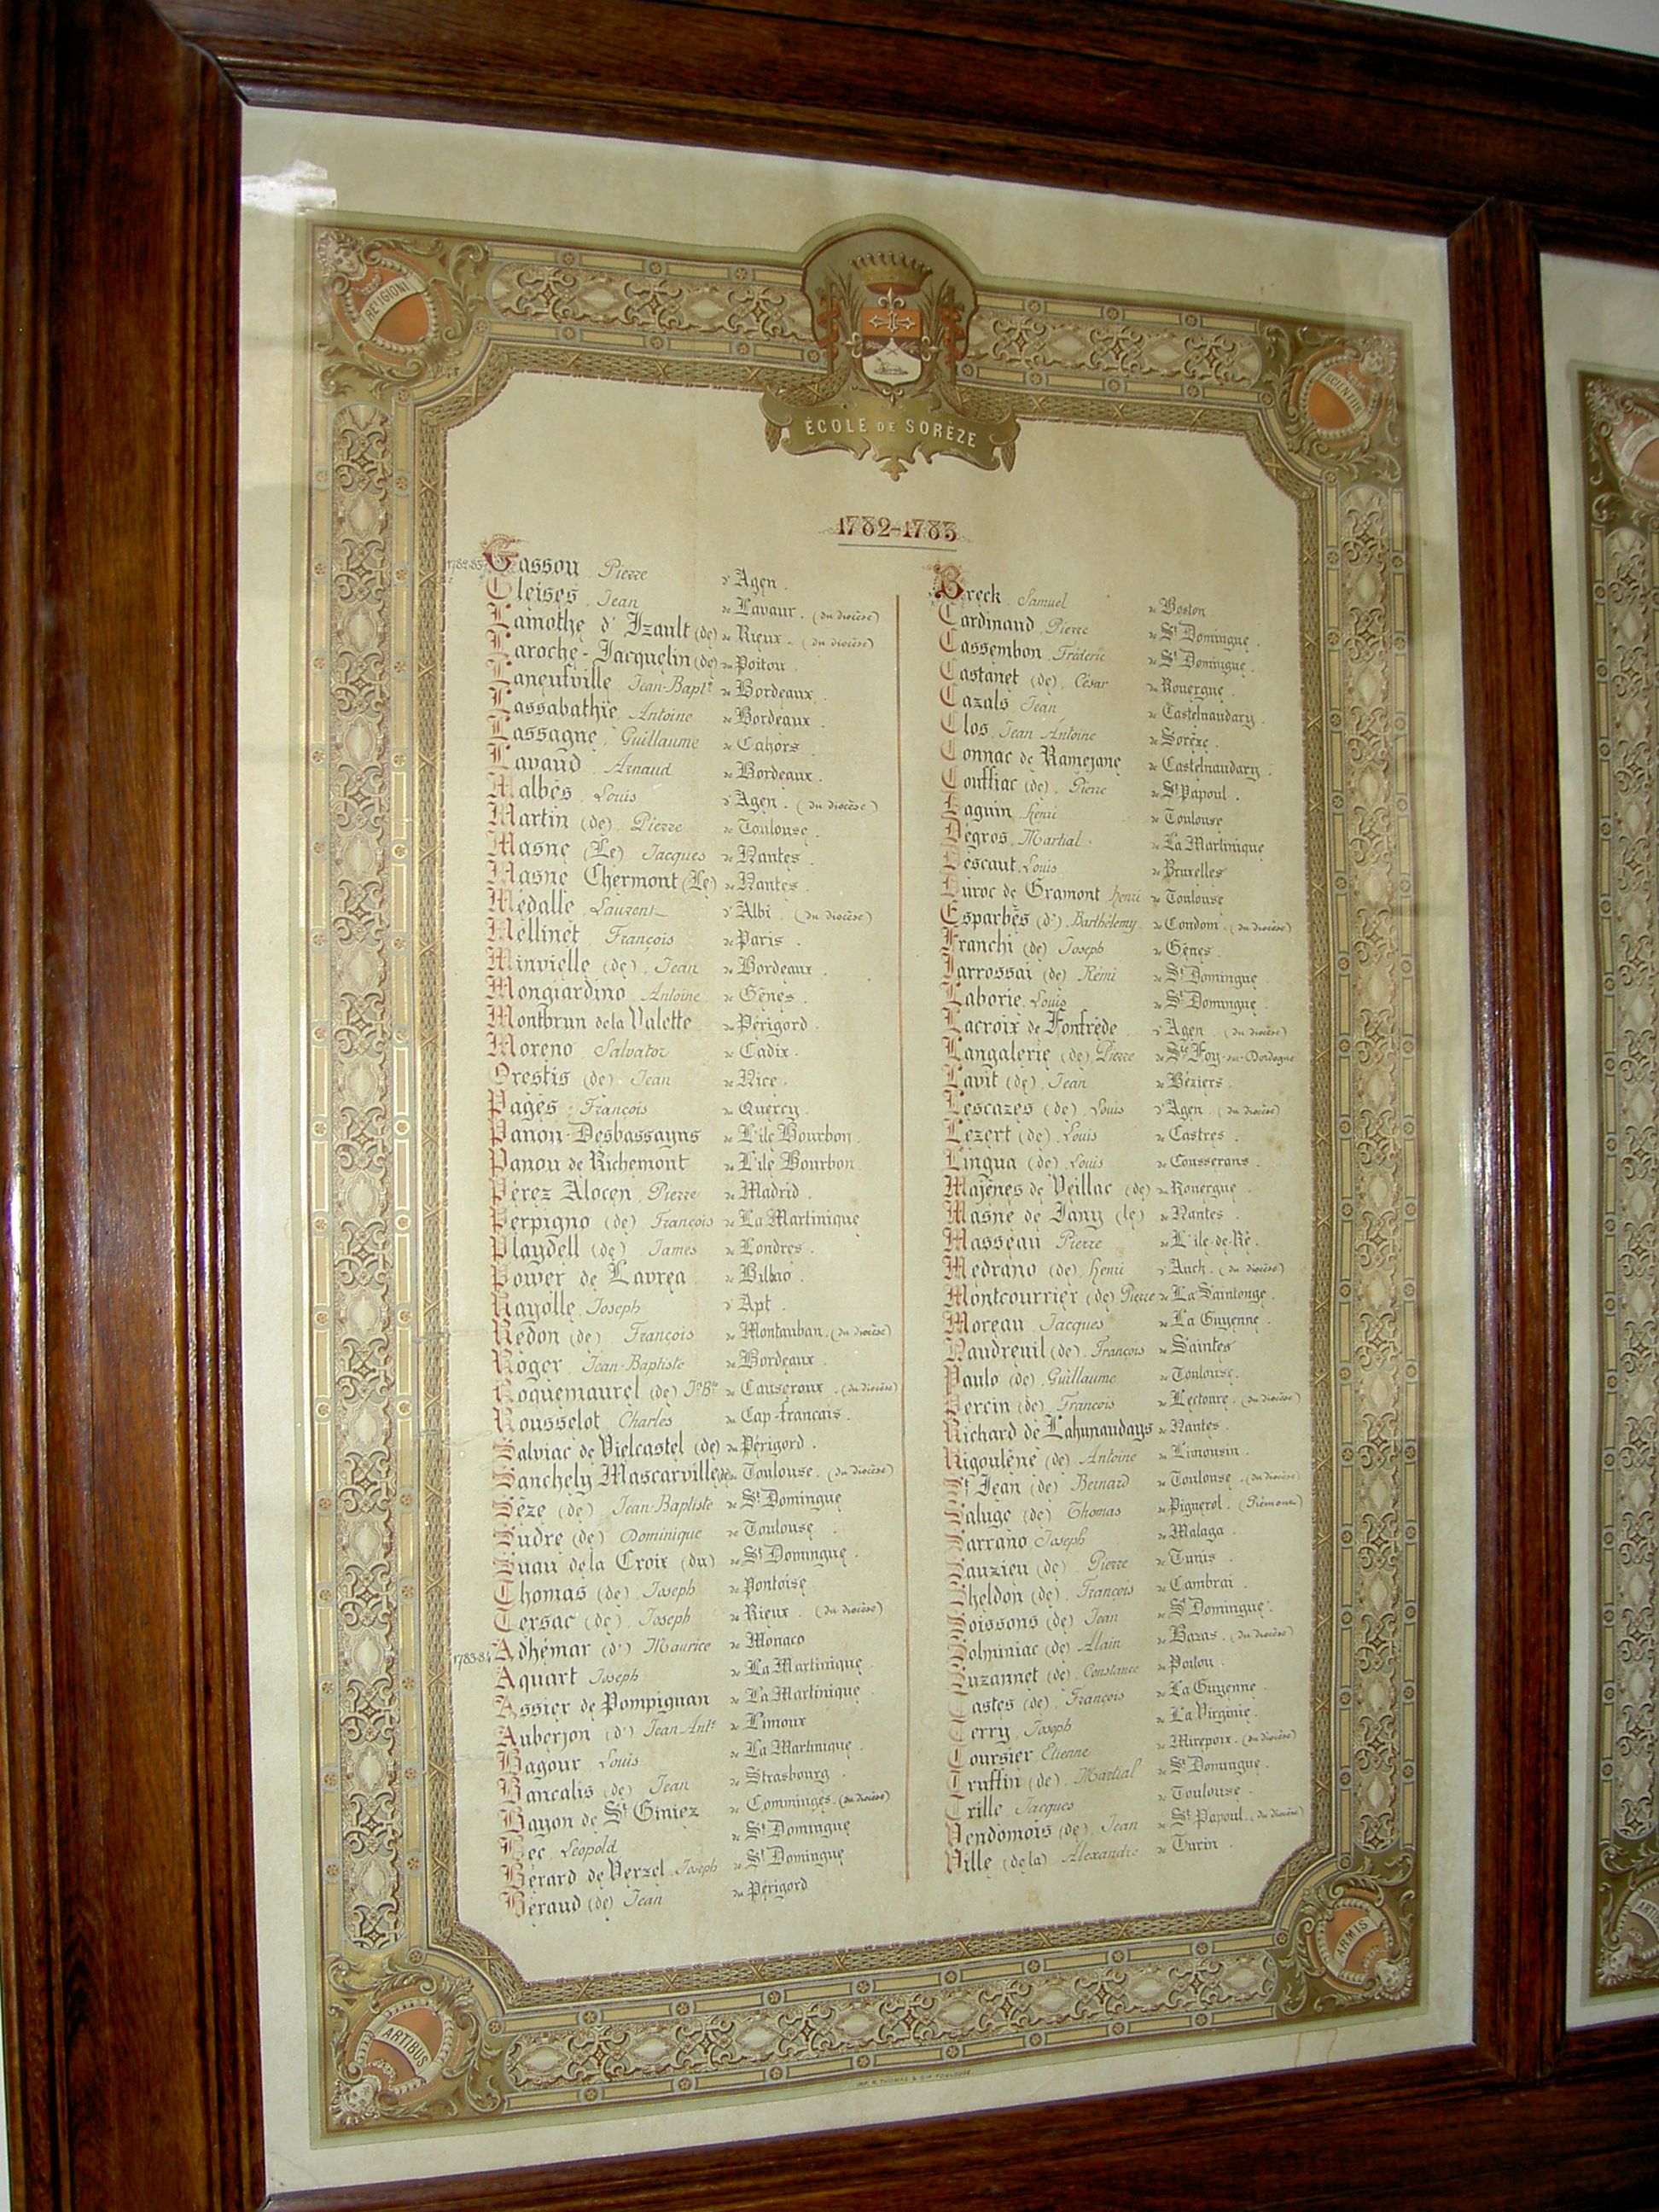 RELIGIONI
SCIENTIAE
ÉCOLE DE SORÈZE
1782-1783
1782-83 Gassou Pierre d'Agen.
Cleises Jean de Lavaur. (du diocèse)
Lamothe d'Izault (de) de Rieux. (du diocèse)
Laroche-Jacquelin (de) du Poitou.
Laneufville Jean-Bapte de Bordeaux.
Lassabathie Antoine de Bordeaux.
Lassagne Guillaume de Cahors.
Lavaud Arnaud de Bordeaux.
Malbès Louis d'Agen. (du diocèse)
Martin (de) Pierre de Toulouse.
Masne (Le) Jacques de Nantes.
Masne Chermont (Le) de Nantes.
Médalle Laurent d'Albi. (du diocèse)
Mellinet François de Paris.
Minvielle (de) Jean de Bordeaux.
Mongiardino Antoine de Gênes.
Montbrun de la Valette du Périgord.
Moreno Salvator de Cadix.
Orestis (de) Jean de Nice.
Pagès François du Quercy.
Panon-Desbassayns de L'ile Bourbon.
Panon de Richemont de L'ile Bourbon
Pérez Alocen Pierre de Madrid.
Perpigno (de) François de La Martinique
Playdell (de) James de Londres.
Power de Lavrea de Bilbao.
Rayolle Joseph d'Apt.
Rédon (de) François de Montauban. (du diocèse)
Roger Jean-Baptiste de Bordeaux.
Roquemaurel (de) Jn Bte de Causeroux. (du diocèse)
Rousselot Charles du Cap-français.
Salviac de Vielcastel (de) du Périgord.
Sanchely Mascarville (de) de Toulouse. (du diocèse)
Sèze (de) Jean-Baptiste de St Domingue
Sudre (de) Dominique de Toulouse
Suau de la Croix (du) de St Domingue.
Thomas (de) Joseph de Pontoise
Tersac (de) Joseph de Rieux. (du diocèse)
1783-84 Adhémar (d') Maurice de Monaco
Aquart Joseph de La Martinique
Assier de Pompignan de La Martinique
Auberjon (d') Jean-Ante de Limoux
Bagour Louis de La Martinique.
Bancalis (de) Jean de Strasbourg.
Bayon de St Giniez de Comminges. (du diocèse)
Bec Léopold de St Domingue
Bérard de Verzel Joseph de St Domingue
Béraud (de) Jean du Périgord
Breck Samuel de Boston
Cardinaud Pierre de St Domingue.
Cassembon Fréderic de St Domingue.
Castanet (de) César du Rouergue.
Cazals Jean de Castelnaudary.
Clos Jean Antoine de Sorèze.
Connac de Ramejane de Castelnaudary.
Couffiac (de) Pierre de St Papoul.
Daguin Henri de Toulouse
Dégros Martial de La Martinique
Descaut Louis de Bruxelles
Duroc de Gramont Henri de Toulouse
Esparbès (d') Barthélemy de Condom. (du diocèse)
Franchi (de) Joseph de Gênes.
Jarrossai (de) Rémi de St Domingue
Laborie Louis de St Domingue
Lacroix de Fonfrède d'Agen. (du diocèse)
Langalerie (de) Pierre de Ste Foy-sur-Dordogne
Lavit (de) Jean de Béziers.
Lescazes (de) Louis d'Agen. (du diocèse)
Lézert (de) Louis de Castres.
Lingua (de) Louis de Cousserans.
Majènes de Veillac (de) du Rouergue.
Masne de Jany (le) de Nantes.
Masseau Pierre de L'ile-de-Ré.
Medrano (de) Henri d'Auch. (du diocèse)
Montcourrier (de) Pierre de La Saintonge.
Moreau Jacques de La Guyenne.
Naudreuil (de) François de Saintes
Paulo (de) Guillaume de Toulouse.
Percin (de) François de Lectoure. (du diocèse)
Richard de Lahunaudays de Nantes.
Rigoulène (de) Antoine du Limousin.
St Jean (de) Bernard de Toulouse. (du diocèse)
Saluge (de) Thomas de Pignerol. (Piémont)
Sarrano Joseph de Malaga.
Sauzieu (de) Pierre de Tunis.
Sheldon (de) François de Cambrai.
Soissons (de) Jean de St Domingue.
Solminiac (de) Alain de Bazas. (du diocèse)
Suzannet (de) Constance du Poitou.
Castes (de) François de La Guyenne.
Terry Joseph de La Virginie.
Toursier Etienne de Mirepoix. (du diocèse)
Truffin (de) Martial de St Domingue.
Trille Jacques de Toulouse.
Vendomois (de) Jean de St Papoul. (du diocèse)
Ville (de la) Alexandre de Turin.
ARTIBUS
ARMIS